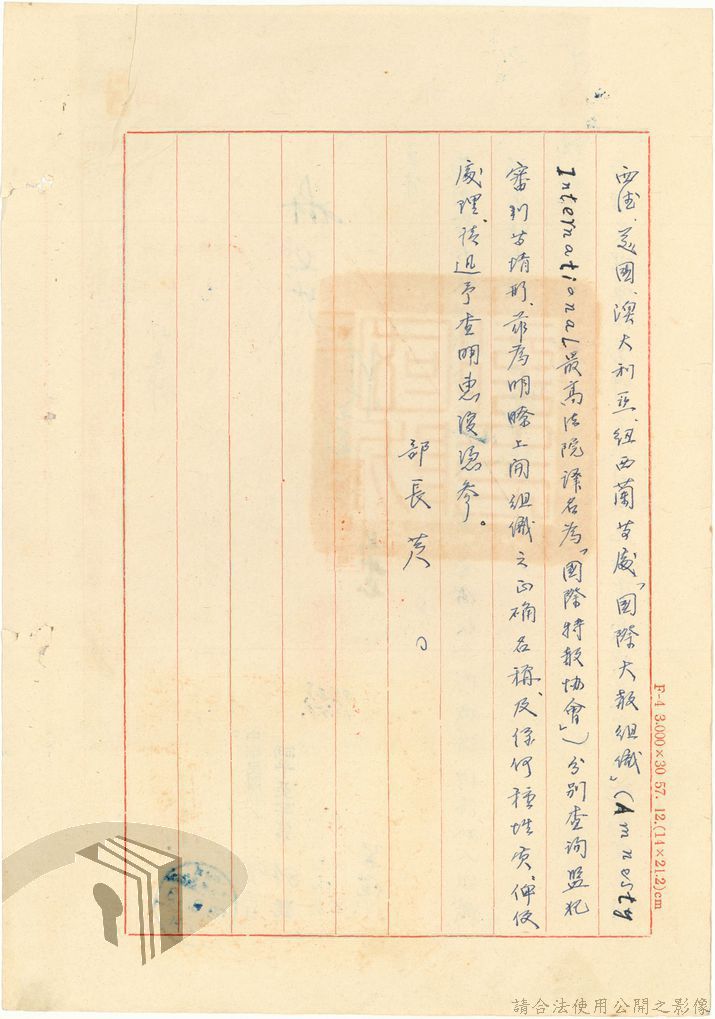 西德、英國、澳大利亞、紐西蘭等處「國際大赦組織」(Amnesty
International最高法院譯名為「國際特赦協會」)分別查詢監犯
審判等情形、茲為明瞭上開組織之正确名稱、及係何種性質、俾便
處理、請迅予查明惠復憑參。
部長 黃
F-4 3.000×30 57. 12.(14×21.2)cm
請合法使用公開之影像